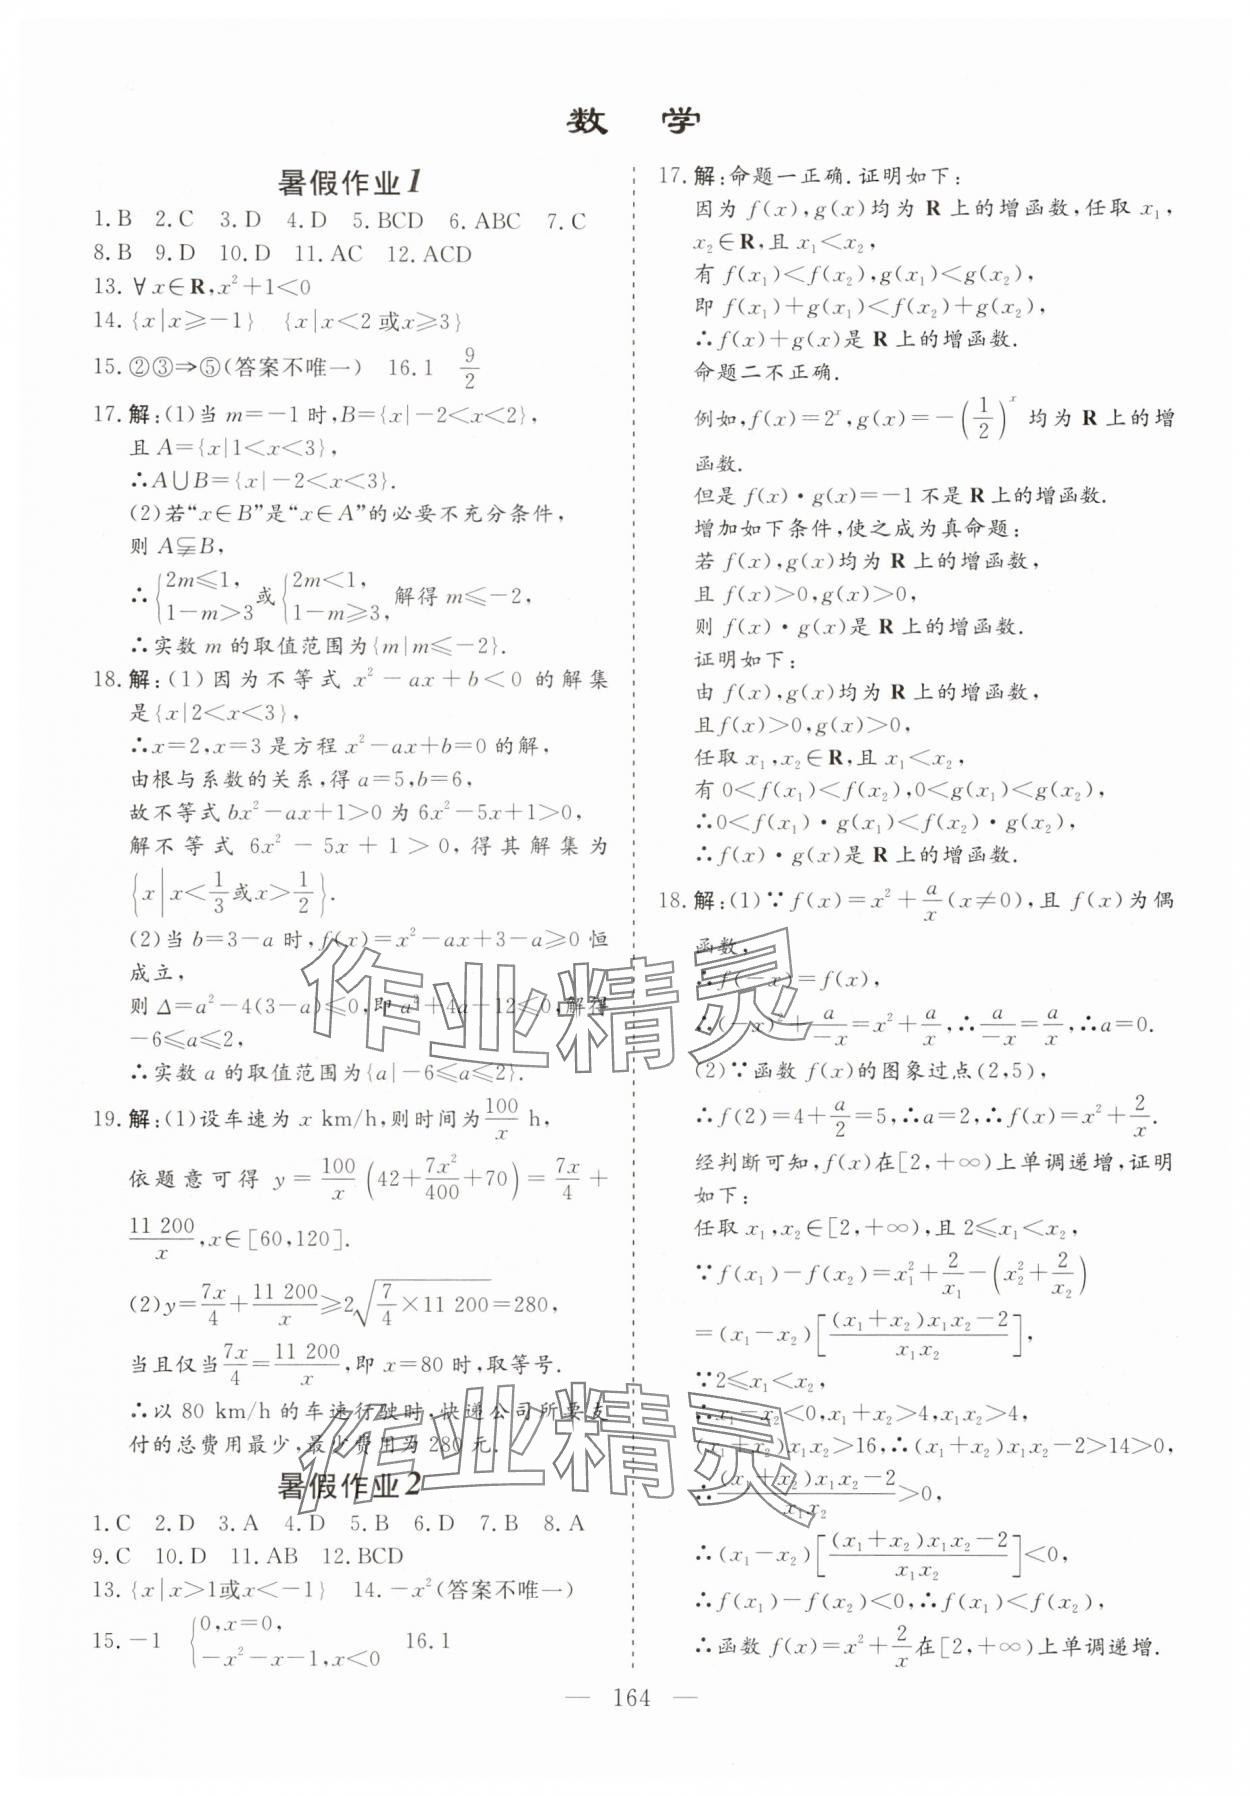 数 学
暑假作业1
1.B 2.C 3.D 4.D 5.BCD 6.ABC 7.C
8.B 9.D 10.D 11.AC 12.ACD
13.∀x∈R,x²+1<0
14.{x|x≥-1} {x|x<2或x≥3}
15.②③⇒⑤(答案不唯一) 16.1 9/2
17.解:(1)当m=-1时,B={x|-2<x<2},
且A={x|1<x<3},
∴A∪B={x|-2<x<3}.
(2)若“x∈B”是“x∈A”的必要不充分条件,
则A⫋B,
∴{2m≤1, 1-m>3 或 {2m<1, 1-m≥3, 解得m≤-2,
∴实数m的取值范围为{m|m≤-2}.
18.解:(1)因为不等式x²-ax+b<0的解集
是{x|2<x<3},
∴x=2,x=3是方程x²-ax+b=0的解,
由根与系数的关系,得a=5,b=6,
故不等式bx²-ax+1>0为6x²-5x+1>0,
解不等式6x²-5x+1>0,得其解集为
{x|x<1/3或x>1/2}.
(2)当b=3-a时,f(x)=x²-ax+3-a≥0恒
成立,
则Δ=a²-4(3-a)≤0,即a²+4a-12≤0,解得
-6≤a≤2,
∴实数a的取值范围为{a|-6≤a≤2}.
19.解:(1)设车速为x km/h,则时间为100/x h,
依题意可得y=100/x(42+7x²/400+70)=7x/4+
11 200/x,x∈[60,120].
(2)y=7x/4+11 200/x≥2√(7/4×11 200)=280,
当且仅当7x/4=11 200/x,即x=80时,取等号.
∴以80 km/h的车速行驶时,快递公司所要支
付的总费用最少,最少费用为280元.
暑假作业2
1.C 2.D 3.A 4.D 5.B 6.D 7.B 8.A
9.C 10.D 11.AB 12.BCD
13.{x|x>1或x<-1} 14.-x²(答案不唯一)
15.-1 {0,x=0, -x²-x-1,x<0 16.1
17.解:命题一正确.证明如下:
因为f(x),g(x)均为R上的增函数,任取x₁,
x₂∈R,且x₁<x₂,
有f(x₁)<f(x₂),g(x₁)<g(x₂),
即f(x₁)+g(x₁)<f(x₂)+g(x₂),
∴f(x)+g(x)是R上的增函数.
命题二不正确.
例如,f(x)=2ˣ,g(x)=-(1/2)ˣ均为R上的增
函数.
但是f(x)·g(x)=-1不是R上的增函数.
增加如下条件,使之成为真命题:
若f(x),g(x)均为R上的增函数,
且f(x)>0,g(x)>0,
则f(x)·g(x)是R上的增函数.
证明如下:
由f(x),g(x)均为R上的增函数,
且f(x)>0,g(x)>0,
任取x₁,x₂∈R,且x₁<x₂,
有0<f(x₁)<f(x₂),0<g(x₁)<g(x₂),
∴0<f(x₁)·g(x₁)<f(x₂)·g(x₂),
∴f(x)·g(x)是R上的增函数.
18.解:(1)∵f(x)=x²+a/x(x≠0),且f(x)为偶
函数,
∴f(-x)=f(x),
∴(-x)²+a/-x=x²+a/x,∴a/-x=a/x,∴a=0.
(2)∵函数f(x)的图象过点(2,5),
∴f(2)=4+a/2=5,∴a=2,∴f(x)=x²+2/x.
经判断可知,f(x)在[2,+∞)上单调递增,证明
如下:
任取x₁,x₂∈[2,+∞),且2≤x₁<x₂,
∵f(x₁)-f(x₂)=x₁²+2/x₁-(x₂²+2/x₂)
=(x₁-x₂)[((x₁+x₂)x₁x₂-2)/x₁x₂],
∵2≤x₁<x₂,
∴x₁-x₂<0,x₁+x₂>4,x₁x₂>4,
(x₁+x₂)x₁x₂>16,∴(x₁+x₂)x₁x₂-2>14>0,
∴((x₁+x₂)x₁x₂-2)/x₁x₂>0,
∴(x₁-x₂)[((x₁+x₂)x₁x₂-2)/x₁x₂]<0,
∴f(x₁)-f(x₂)<0,∴f(x₁)<f(x₂),
∴函数f(x)=x²+2/x在[2,+∞)上单调递增.
— 164 —
作业精灵
作业精灵